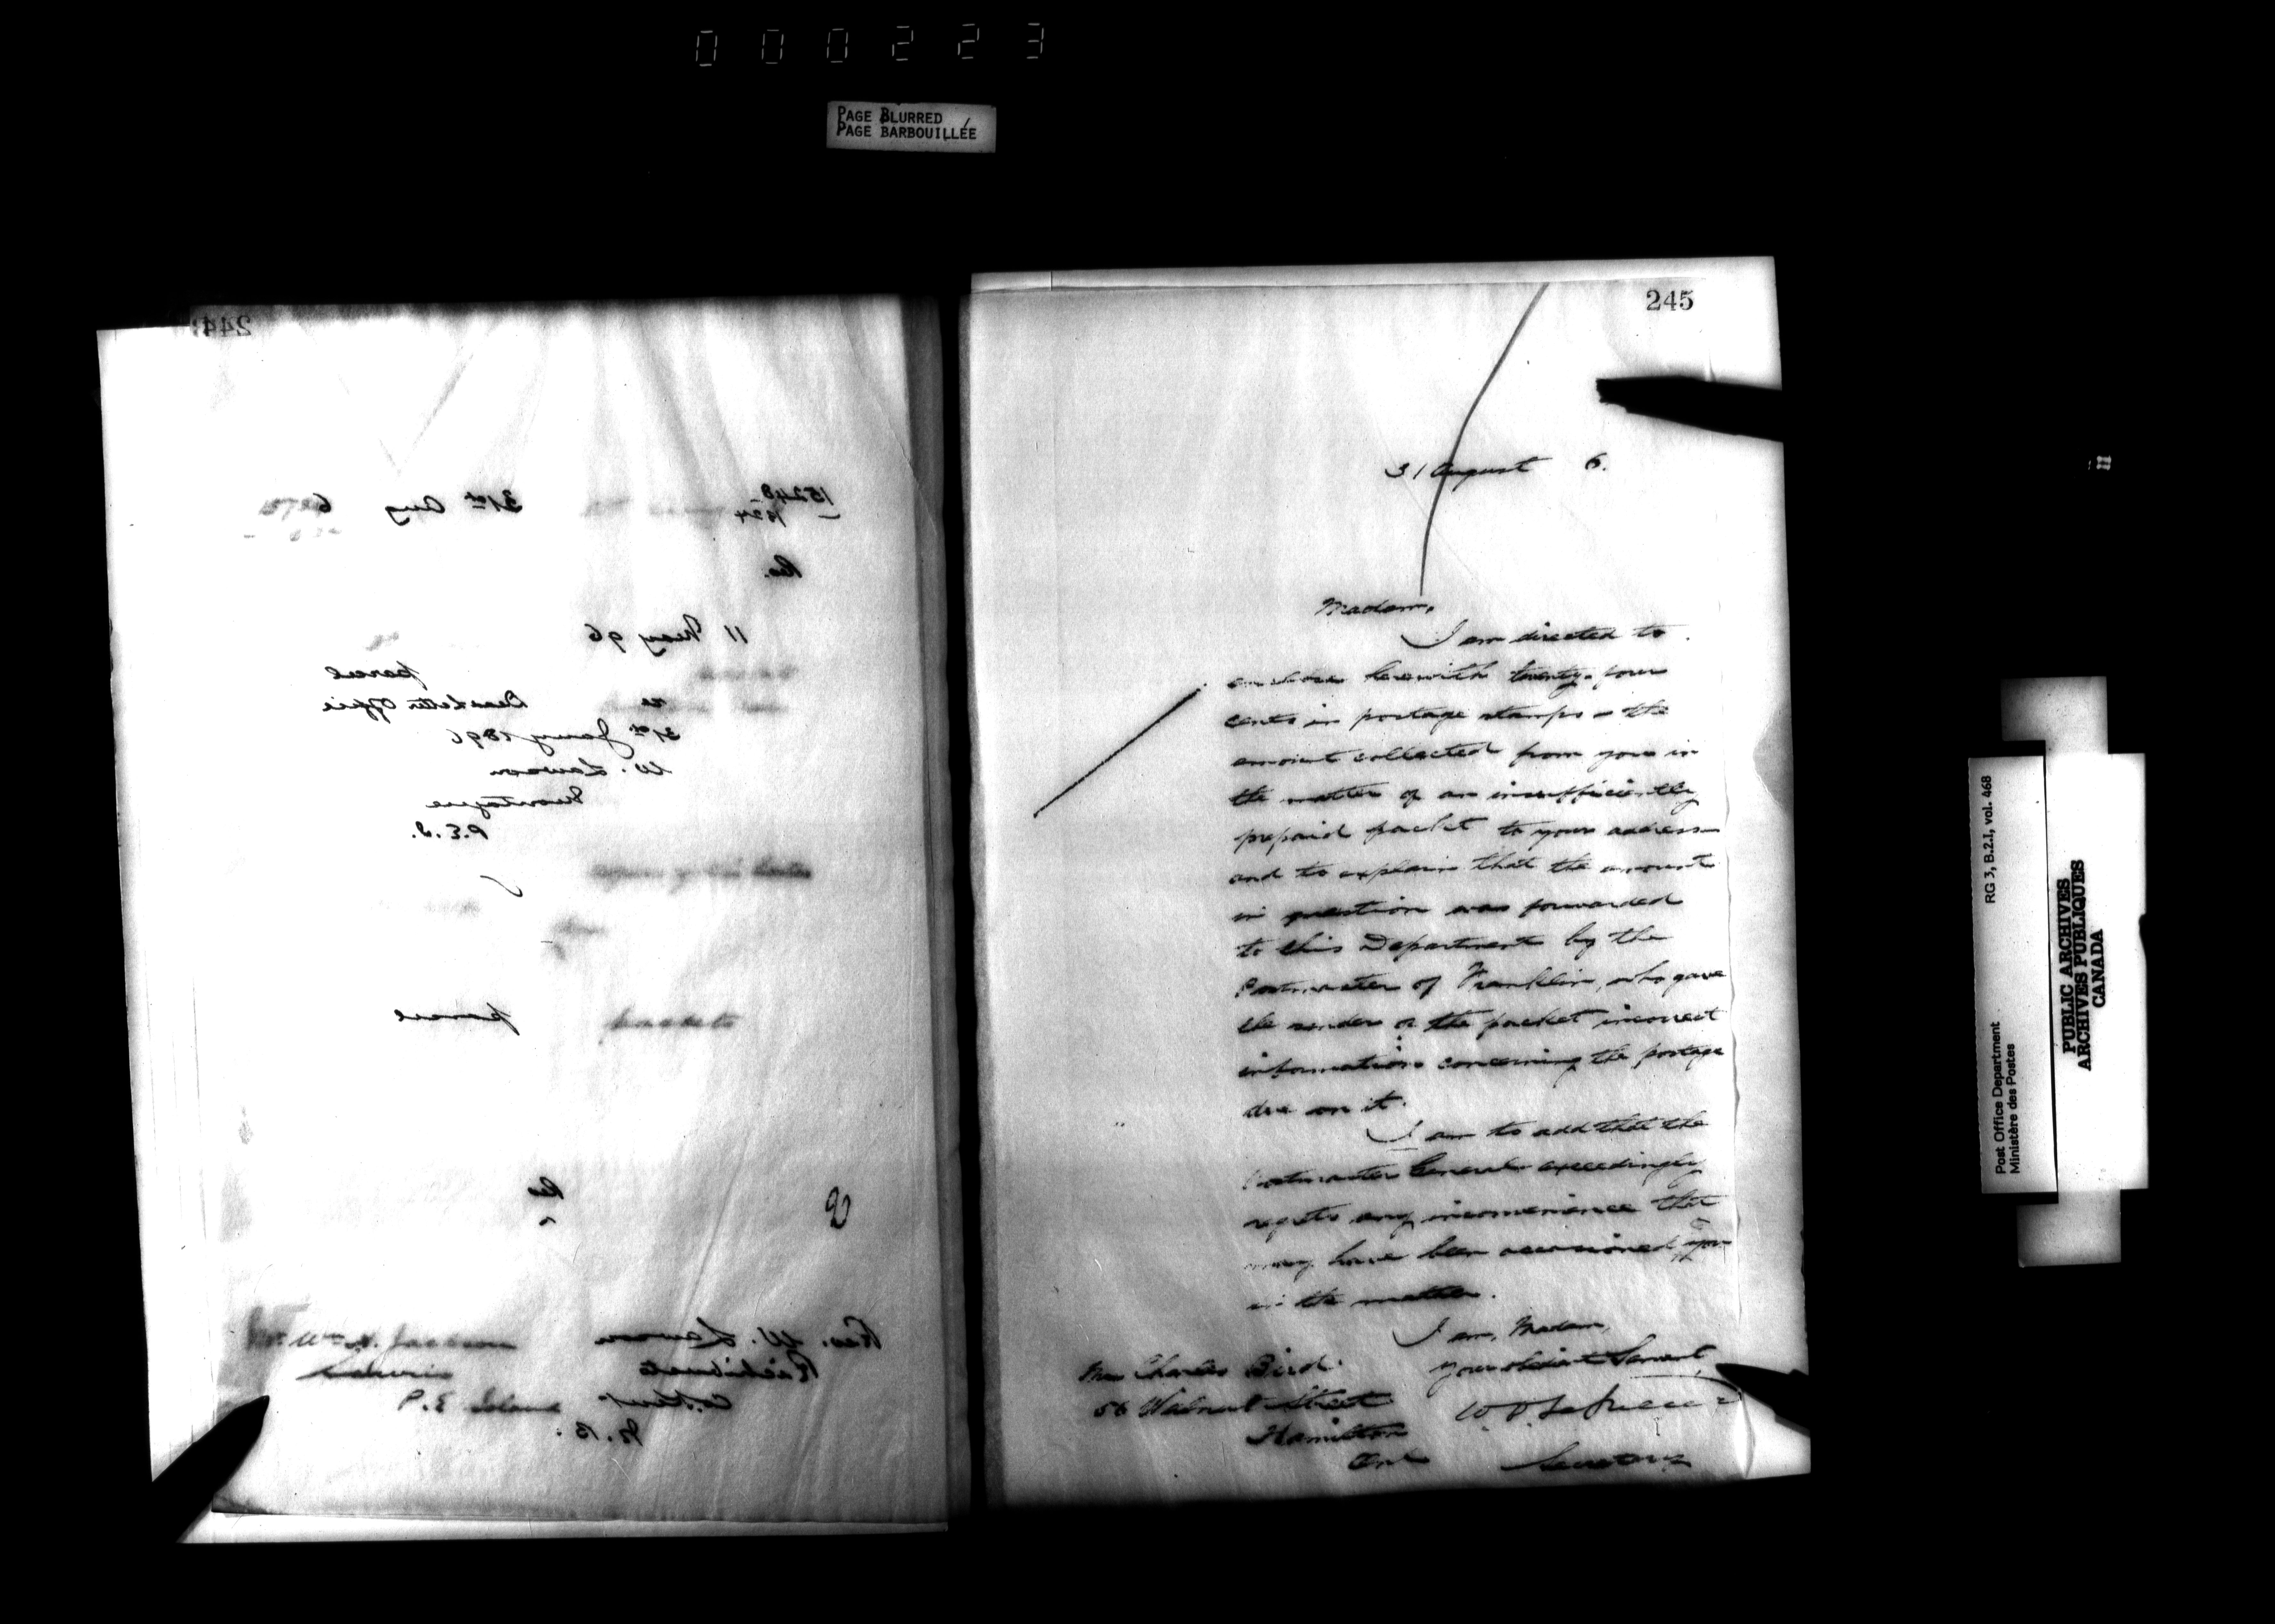 000223
PAGE BLURRED
PAGE BARBOUILLÉE
244
15248
31st Aug 6
Re.
11 May 96
parcel
re Dead Letter Office
31st Jany 1896
W. Lawson
Montague
P.E.I.
packets parcel
Re
Rev. W. Lawson
Richibucto
Co. Kent
N.B.
Mr. Wm. Jackson
P.E. Island
245
31 August 6.
Madam,
I am directed to
enclose herewith twenty-four
cents in postage stamps - the
amount collected from you in
the matter of an insufficiently
prepaid packet to your address
and to explain that the amount
in question was forwarded
to this Department by the
Postmaster of Franklin, who gave
the sender of the packet incorrect
information concerning the postage
due on it.
I am to add that the
Postmaster General exceedingly
regrets any inconvenience that
may have been occasioned you
in the matter.
I am, Madam,
Your obedient Servant,
Secretary
Mrs Charles Bird
56 Walnut Street
Hamilton
Ont
Post Office Department
Ministère des Postes
RG 3, B.2.I, vol. 468
PUBLIC ARCHIVES
ARCHIVES PUBLIQUES
CANADA